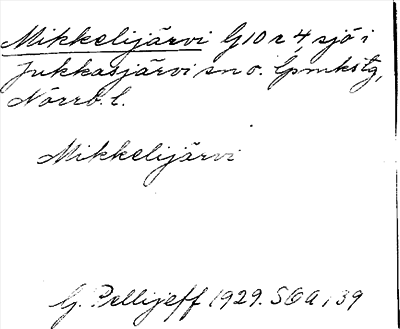 Mikkelijärvi G10 r 4, sjö i
Jukkasjärvi sn o. lpmkstg,
Norrb. l.
Mikkelijärvi
G. Pellijeff 1929. SOA, 39